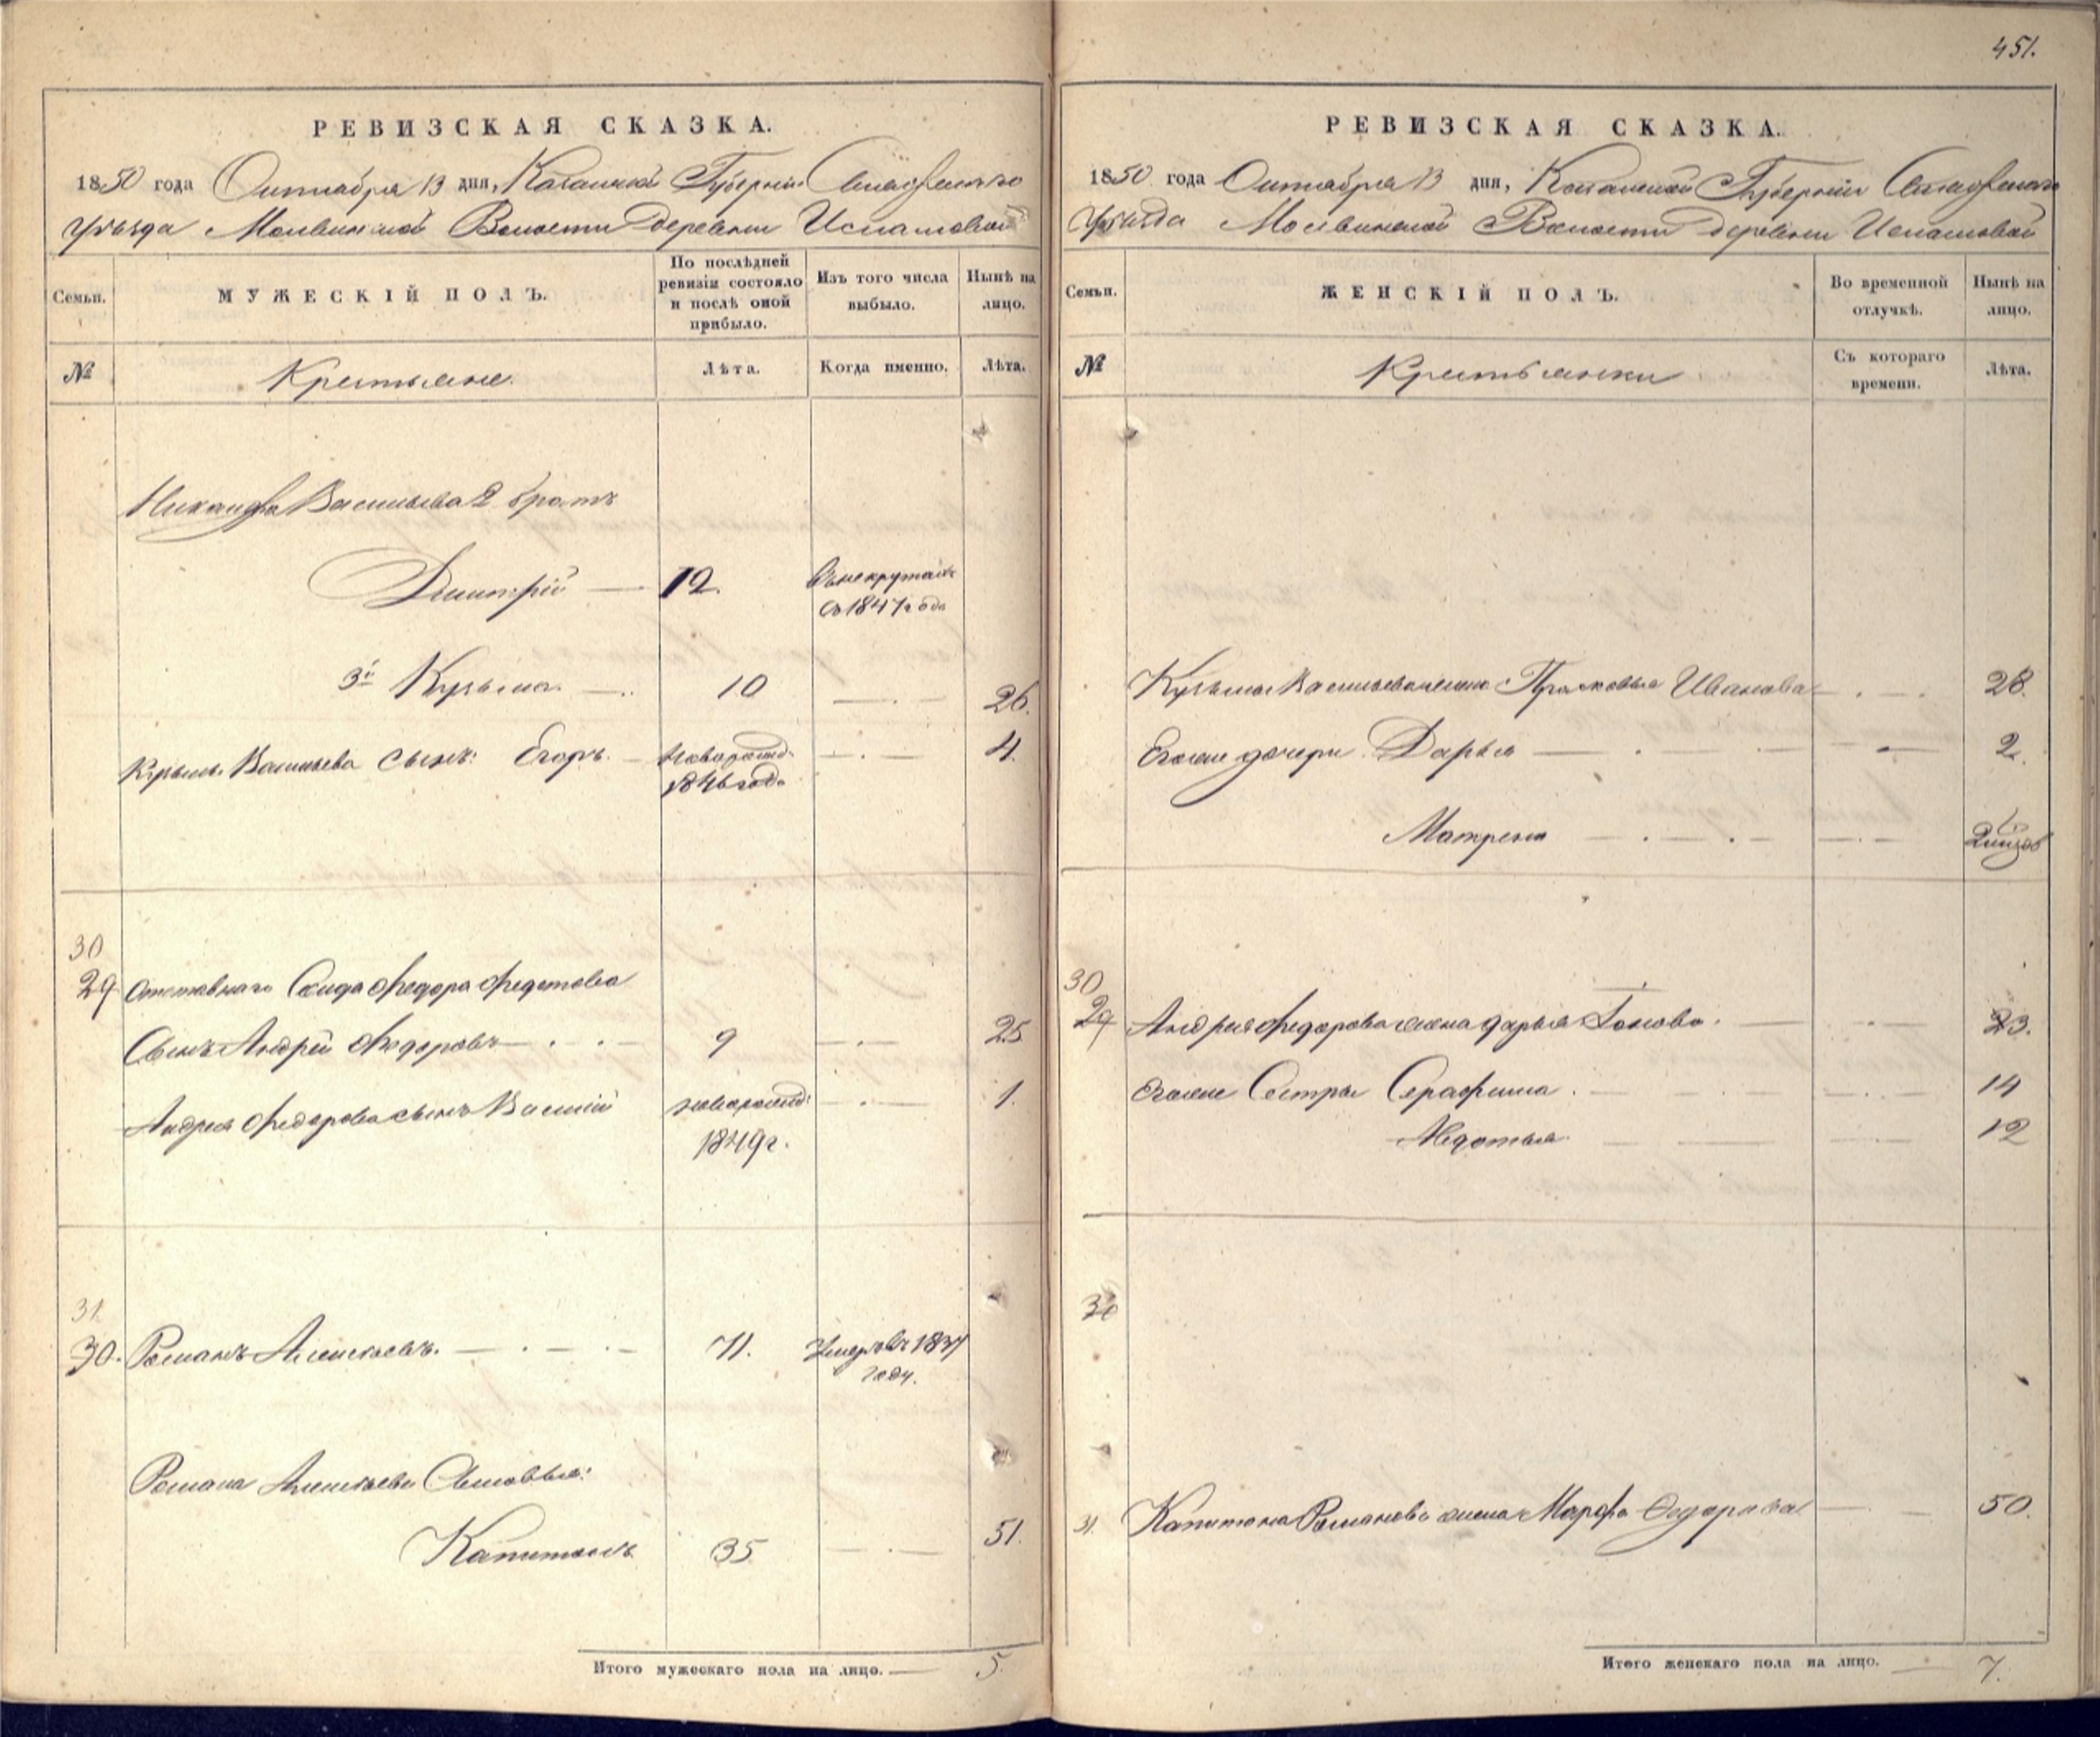 451.
РЕВИЗСКАЯ СКАЗКА.
1850 года Октября 13 дня, Казанской Губерніи Спасскаго
Уѣзда Волости деревни
Семьи.
МУЖЕСКІЙ ПОЛЪ.
По послѣдней ревизіи состояло и послѣ оной прибыло.
Изъ того числа выбыло.
Нынѣ на лицо.
№
Крестьяне.
Лѣта.
Когда именно.
Лѣта.
Никандра Васильева 2 братъ
Дмитрій — 12. въ некрутахъ
съ 1847 года
3й Кузьма. — 10 — . — 26.
Кузьмы Васильева сынъ: Егоръ. — новорожд. — . — 4.
1846 года
30
29 Отставнаго Солдата Федора Федотова
Сынъ Андрей Федоровъ — . . — 9 — . — 25
Андрея Федорова сынъ Василій новорожд: — . — 1.
1849 г.
31.
30. Романъ Алексѣевъ. — . — . — 71. Умеръ въ 1837
году.
Романа Алексѣева Сыновья:
Капитонъ 35 — . — 51.
Итого мужескаго пола на лицо. — 5.
РЕВИЗСКАЯ СКАЗКА.
1850 года Октября 13 дня, Казанской Губерніи Спасскаго
Уѣзда Волости деревни
Семьи.
ЖЕНСКІЙ ПОЛЪ.
Во временной отлучкѣ.
Нынѣ на лицо.
№
Крестьянки
Съ котораго времени.
Лѣта.
Кузьмы Васильева жена Прасковья Иванова — . — 28.
Егоже дочери Дарья — . — 2.
Матрена — . — . —
30
29 Андрея Федорова жена Дарья — . — 23.
Егоже Сестры Серафима . — 14
Авдотья. — 12
30
31. Капитона Романова жена Марфа Федорова — 50.
Итого женскаго пола на лицо. — 7.